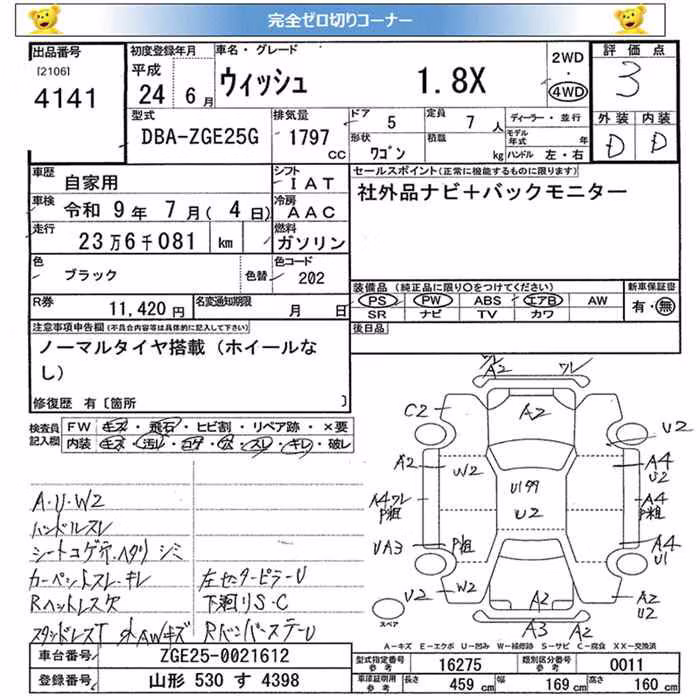 完全ゼロ切りコーナー
出品番号 [2106] 4141
初度登録年月 平成 24 6月
車名・グレード ウィッシュ 1.8X
2WD ・ 4WD
評価点 3
型式 DBA-ZGE25G
排気量 1797 CC
ドア 5
定員 7 人
形状 ワゴン
積載 kg
ディーラー・並行
モデル年式 年
ハンドル 左・右
外装 D
内装 D
車歴 自家用
シフト IAT
車検 令和 9年 7月( 4日)
冷房 AAC
走行 23万6千081 km
燃料 ガソリン
色 ブラック 色替
色コード 202
R券 11,420円
名変通知期限 月 日
セールスポイント(正常に機能するものに限ります)
社外品ナビ+バックモニター
装備品 (純正品に限り○をつけてください)
PS PW ABS エアB AW
SR ナビ TV カワ
新車保証書 有・無
後日品
注意事項申告欄(不具合内容等は具体的に記入して下さい)
ノーマルタイヤ搭載(ホイールな
し)
修復歴 有〔箇所 〕
検査員記入欄
FW キズ・飛石・ヒビ割・リペア跡・×要
内装 キズ・汚レ・コゲ・穴・スレ・キレ・破レ
A・U・W2
ハンドルスレ
シートコゲ穴・ヘタリ シミ
カーペットスレ・キレ
Rヘットレス欠
左センターピラーU
下廻りS・C
RバンパーステーU
A2 ワレ
C2 A2 U2
A2 W2 A4
U2
U199
U2
A4ワレ
P粗
A4
P粗
UA3 P粗 A4
U1
U2 W2 A2 A2
U2
A3 A2
スペア
A－キズ E－エクボ U－凹み W－補修跡 S－サビ C－腐食 XX－交換済
車台番号 ZGE25-0021612
登録番号 山形 530 す 4398
型式指定番号 参考 16275
類別区分番号 参考 0011
車庫証明用 参考 長さ 459 cm 幅 169 cm 高さ 160 cm